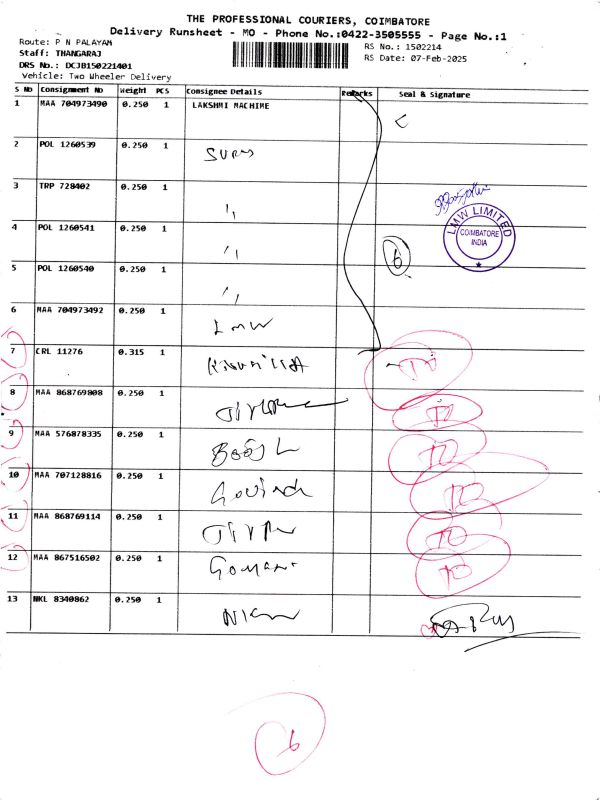 THE PROFESSIONAL COURIERS, COIMBATORE
Delivery Runsheet - MO - Phone No.:0422-3505555 - Page No.:1
Route: P N PALAYAM
Staff: THANGARAJ
DRS No.: DCJB150221401
Vehicle: Two Wheeler Delivery
RS No.: 1502214
RS Date: 07-Feb-2025
S No Consignment No Weight PCS Consignee Details Remarks Seal & Signature
1 MAA 704973490 0.250 1 LAKSHMI MACHINE
2 POL 1260539 0.250 1
3 TRP 728402 0.250 1 ,,
LMW LIMITED
COIMBATORE
INDIA
4 POL 1260541 0.250 1 ,,
6
5 POL 1260540 0.250 1 ,,
6 MAA 704973492 0.250 1 LMW
7 CRL 11276 0.315 1
8 MAA 868769808 0.250 1
9 MAA 576878335 0.250 1
10 MAA 707128816 0.250 1 Govind
11 MAA 868769114 0.250 1
12 MAA 867516502 0.250 1
13 NKL 8340862 0.250 1
6